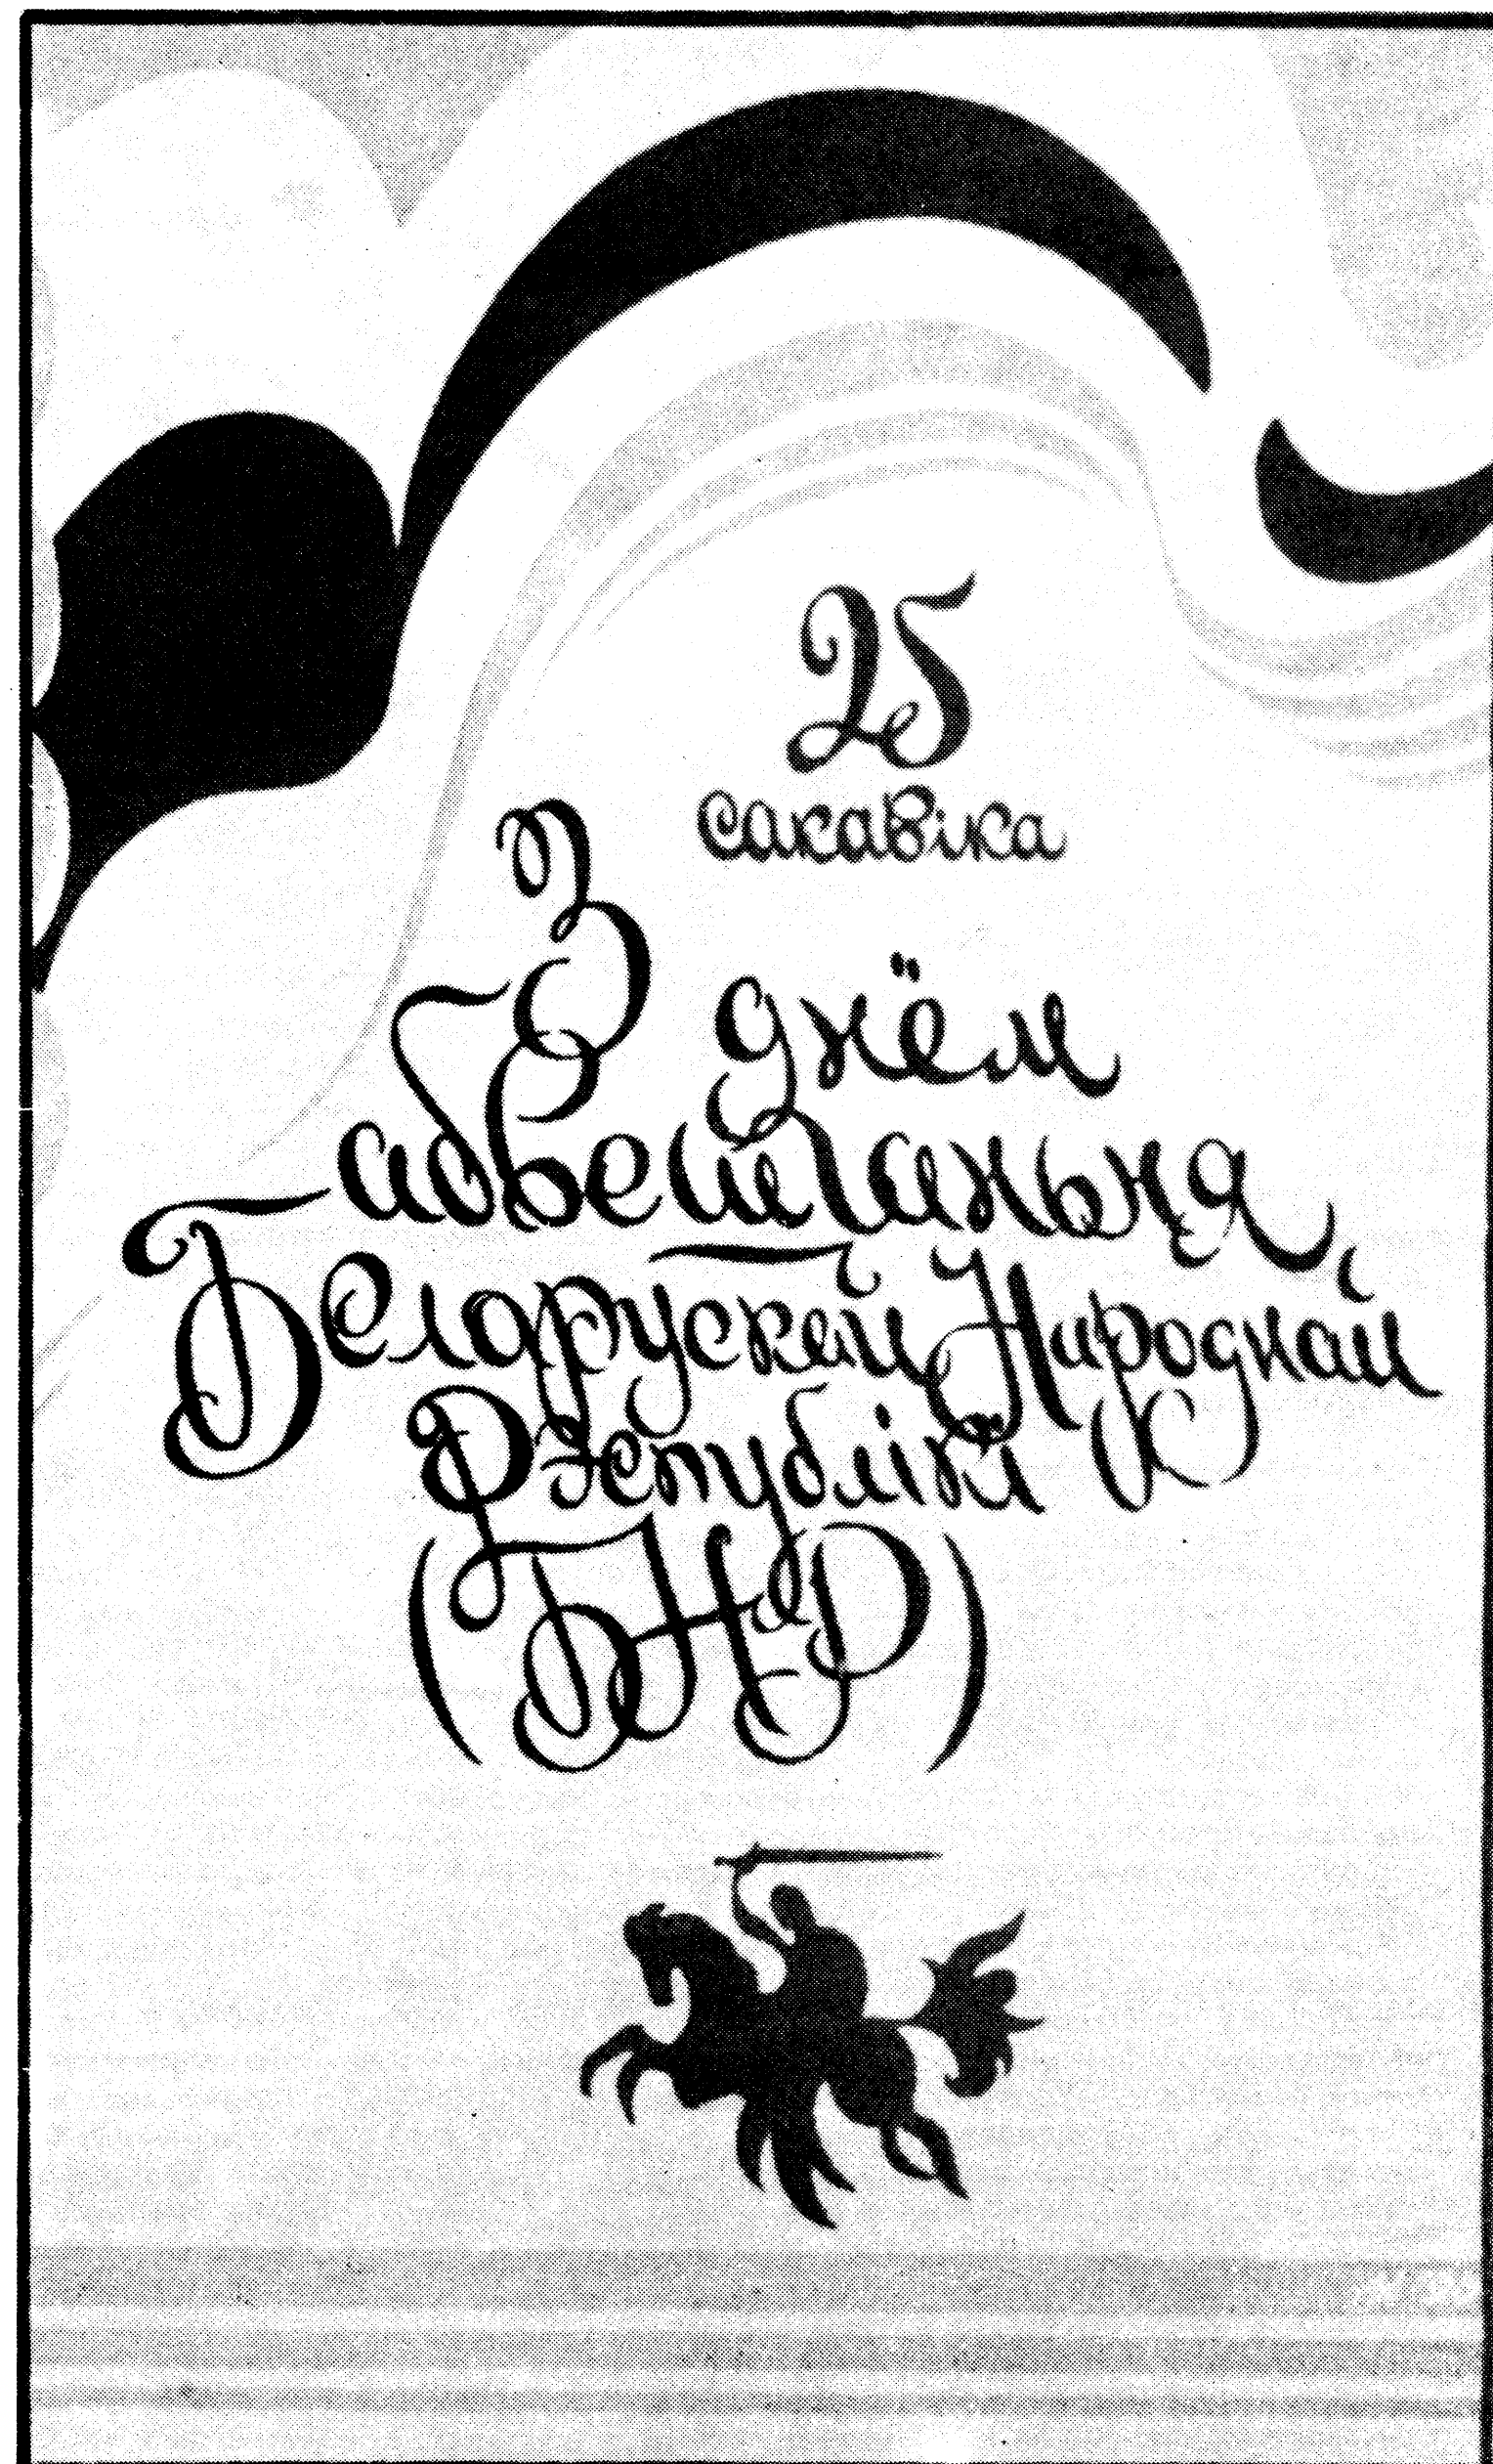 25
сакавіка
З днём
абвешчаньня
Беларускай Народнай
Рэспублікі
(БНР)